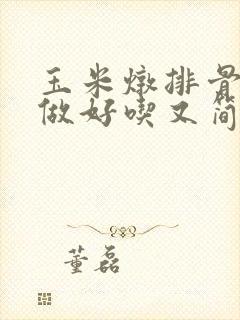 玉米燉排骨
做好喫又简
董磊